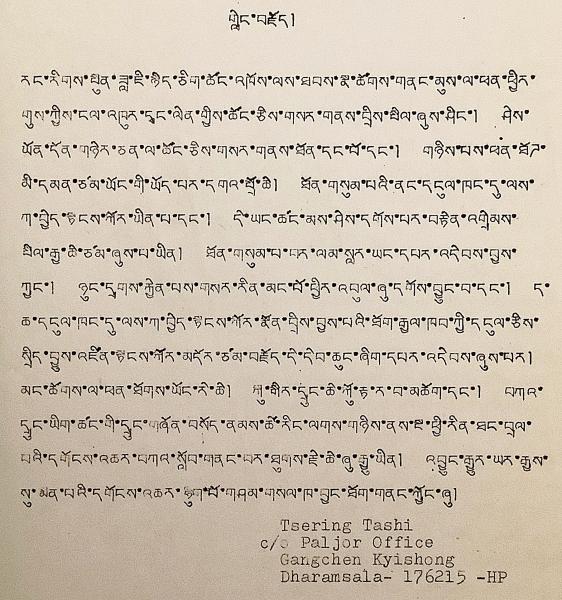 གླེང་བརྗོད།
རང་རིགས་སྤུན་ཟླ་ཇི་ཉིད་ཅིག་ཚོང་འཁོས་ལས་ཐབས་སྣ་ཚོགས་གནང་མུས་ལ་ཕན་ཕྱིར་
གུས་ཀྱིས་ངལ་འཁུར་དྭང་ལེན་གྱིས་ཚོང་རྩིས་གསར་གནས་བྲིས་སྤེལ་ཞུས་ཤིང་། ཤེས་
ཡོན་དོན་གཉེར་ཅན་ལ་ཚོང་རྩིས་གསར་གནས་ཐོན་དང་པོ་དང་། གཉིས་པས་ཕན་ཐོ
མི་དམན་ཙམ་ཡོང་གི་ཡོད་པར་དགའ་སྤྲོ་ཆེ། ཐོན་གསུམ་པའི་ནང་དངུལ་ཁང་དུ་ལས་
ཀ་བྱེད་སྟངས་ཀོར་ཡིན་པ་དང་། དེ་ཡང་ཚང་མས་ཤེས་དགོས་པར་བརྟེན་འགྲེམས་
སྤེལ་རྒྱ་ཆེ་ཙམ་ཞུས་པ་ཡིན། ཐོན་གསུམ་པ་པར་ལམ་སླར་ཡང་དཔར་འདེབས་བྱས་
ཀྱང་། ཉུང་དྲགས་རྐྱེན་པས་གསར་རིན་མང་པོ་ཕྱིར་འབུལ་ཞུ་དགོས་བྱུང་བ་དང་། ད་
ཆ་དངུལ་ཁང་དུ་ལས་ཀ་བྱེད་སྟངས་ཀོར་སྔོན་བྲིས་བྱས་པའི་ཐོག་རྒྱལ་ཁབ་ཀྱི་དངུལ་རྩིས་
སྲིད་བྱུས་འཛིན་སྟངས་ཀོར་མདོར་ཙམ་བརྗོད་དེ་དེབ་ཆུང་ཞིག་དཔར་འདེབས་ཞུས་པར།
མང་ཚོགས་ལ་ཕན་ཐོགས་ཡོང་རེ་ཆེ། ཀུ་གིར་དྲུང་ཆེ་ཀོ རྟ་ར་བ་མཆོག་དང་། བཀའ་
དྲུང་ཡིག་ཚང་གི་དྲུང་གཞོན་བསོད་ནམས་ཚེ་རིང་ལགས་གཉིས་ནས་ཕྱི་རིན་ཐང་བྲལ་
པའི་དགོངས་འཆར་བཀའ་སློབ་གནང་བར་ཐུགས་རྗེ་ཆེ་ཞུ་རྒྱུ་ཡིན། འབྱུང་རྒྱུར་ཡར་རྒྱས་
སུ་མན་པའི་དགོངས་འཆར་ཉུག་པོ་གཤམ་གསལ་ཁ་བྱང་ཐོག་གནང་ཀྱོང་ཞུ།
Tsering Tashi
c/o Paljor Office
Gangchen Kyishong
Dharamsala- 176215 -HP